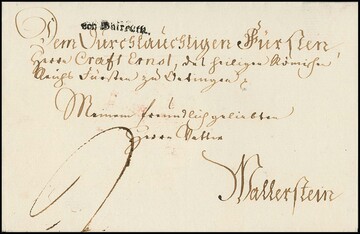 von Baireuth.
Dem Durchlauchtigen Fürsten,
Herrn Craft Ernst, des heiligen Römischen
Reichs Fürsten zu Oetingen
Meinem freundlich geliebten
Herrn Vetter
Wallerstein